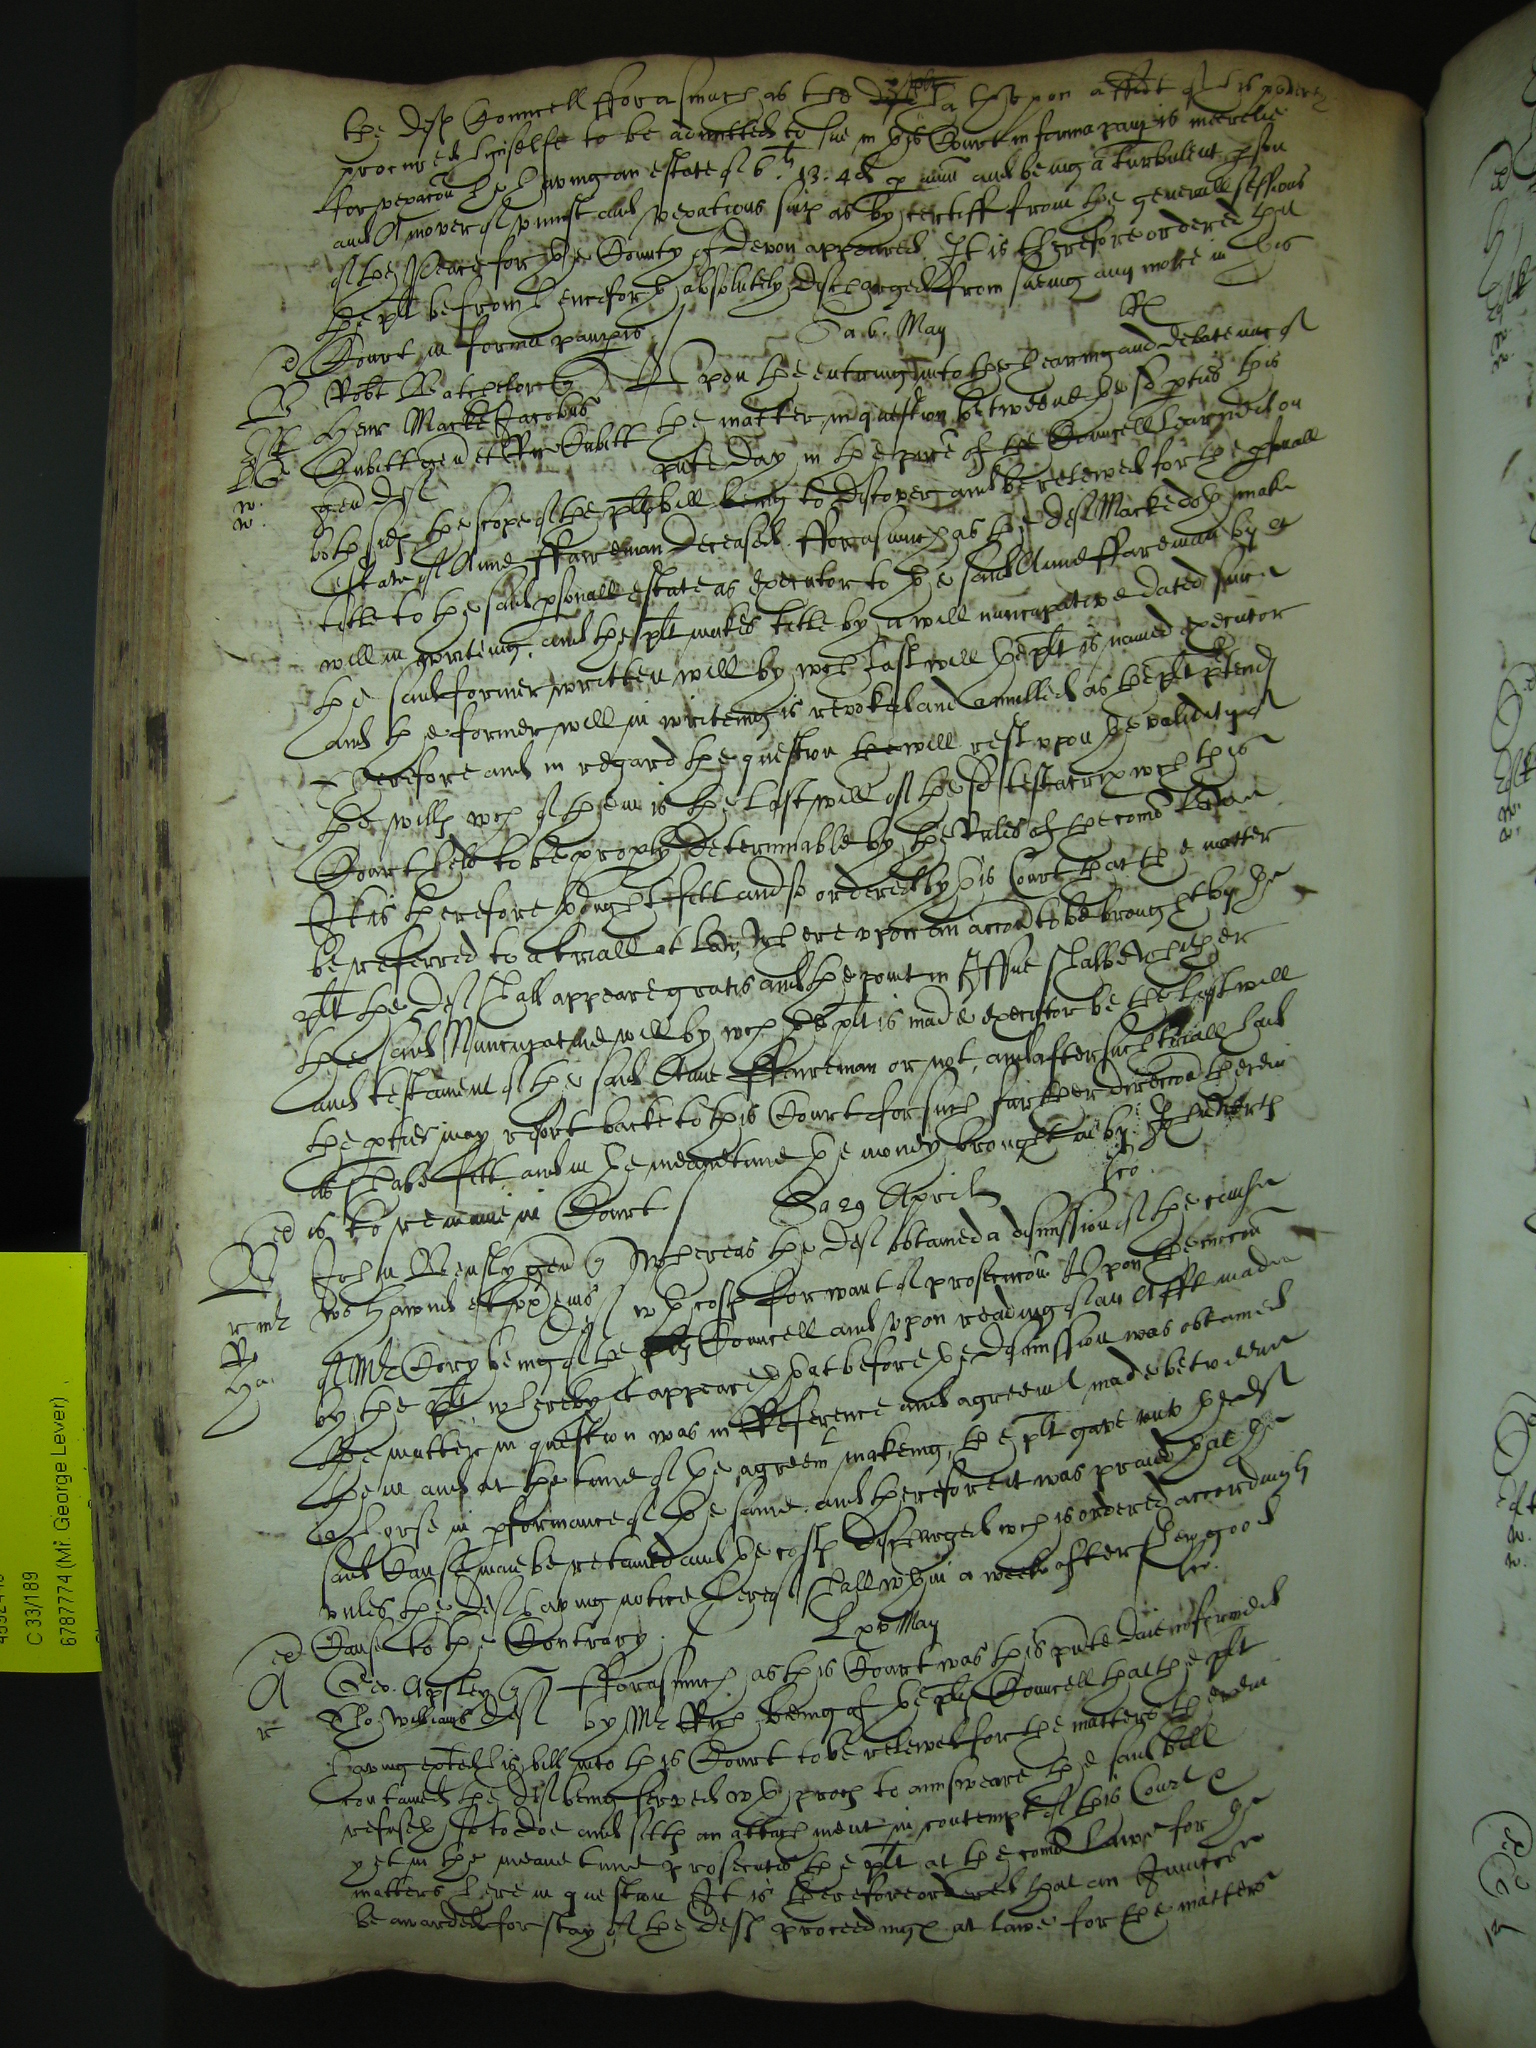 the defts Councell Forasmuch as the plt hath upon affidt of his poverty
procured himselfe to be admitted to sue in this Court in forma paupis meerelie
for vexacon he having an estate of 6li 13s 4d p ann and being a turbulent pson
and A mover of uniust and vexatious suits as by certiff from the generall sessions
of the Peace for the County of Devon appeared. It is therefore ordered that
the plt be from henceforth absolutely discharged from sueing any more in this
Court in forma paupis
Sa 6. May
Robt Batcheler
Henr Marke Jacobus Upon the entring into the hearing and debateing of
Cubitt gen et Ric Cubitt the matter in question betweene the sd pties this
gen defts pnte day in the pnce of the Councell learned on
both sides the scope of the plts bill being to discover and be releived for the psonall
estate of Anne Faireman deceased. Forasmuch as the deft Marke doth make
title to the said psonall estate as executor to the said Anne Faireman by a
will in writeing, and the plt makes title by a will nuncupative dated since
the said former written will by wch last will the plt is named executor
and the former will in writeing is revoked and annulled as the plt ptends
Therefore and in regard the question will rest upon the validity of
the wills wch of them is the last will of the sd testatrix wch this
Court held to be pply determinable by the Rules of the comon Lawe
It is therefore thought fitt and so ordered by this Court that the matter
be referred to a triall at Law, whereupon an accon to be brought by the
plt the deft shall appeare gratis and the point in Issue shalbe whether
the said Nuncupative will by wch the plt is made executor be the last will
and testament of the said Anne Faireman or not, and after such triall had
the pties may resort backe to this Court for such further direccon therein
as shalbe fitt and in the meane time the money brought in by
is to remaine in Court
Sa 29 Aprilis
John Bensly gen Whereas the deft obtained a dismission of the cause
wth costs for want of prosecucon Upon the mocon
of Mr Cory being of the Councell and upon reading of an Afft made
by the plt, whereby it appeareth that before the dismission was obtained
the matter in question was in Reference and agreemt made betweene
them and at the time of the agreemt makeing, the plt gave unto the deft
a horse in pformance of the same. and therefore it was praied that the
said Cause maie be retained and the costs discharged wch is ordered accordingly
unles the deft having notice hereof shall wthin a week after shew good
Cause to the Contrary.
Lune May
Geo. Apsley Forasmuch as this Court was this pnte daie informed
Tho: Williams deft by Mr Rich being of the plts Councell that the plt
having exted his bill into this Court to be releived for the matters therein
contained the deft being served wth proces to aunsweare the said bill
refuseth so to doe and sitts an attachment in contempt of this Court
yet in the meane time prosecuts the plt at the comon Lawe for the
matters here in question It is therefore ordered that an Iniuncon
be awarded for stay of the defts proceedings at lawe for the matters
C 33/189
6787774 (Mr. George Lever)